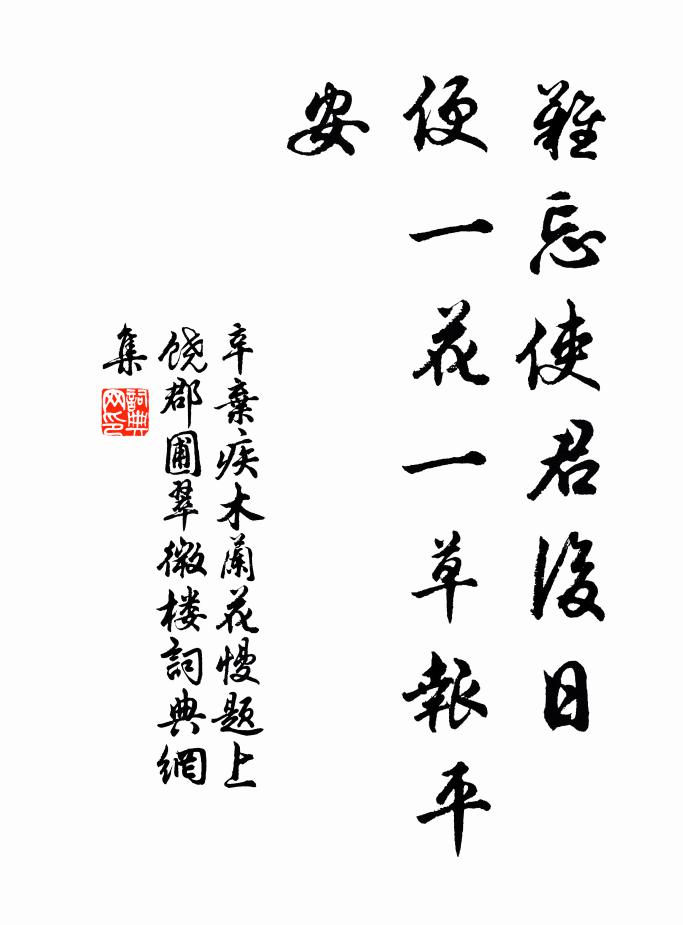 難忘使君後日
便一花一草報平
安
辛棄疾木蘭花慢題上
饶郡圃翠微楼詞典網
集
詞典
网印